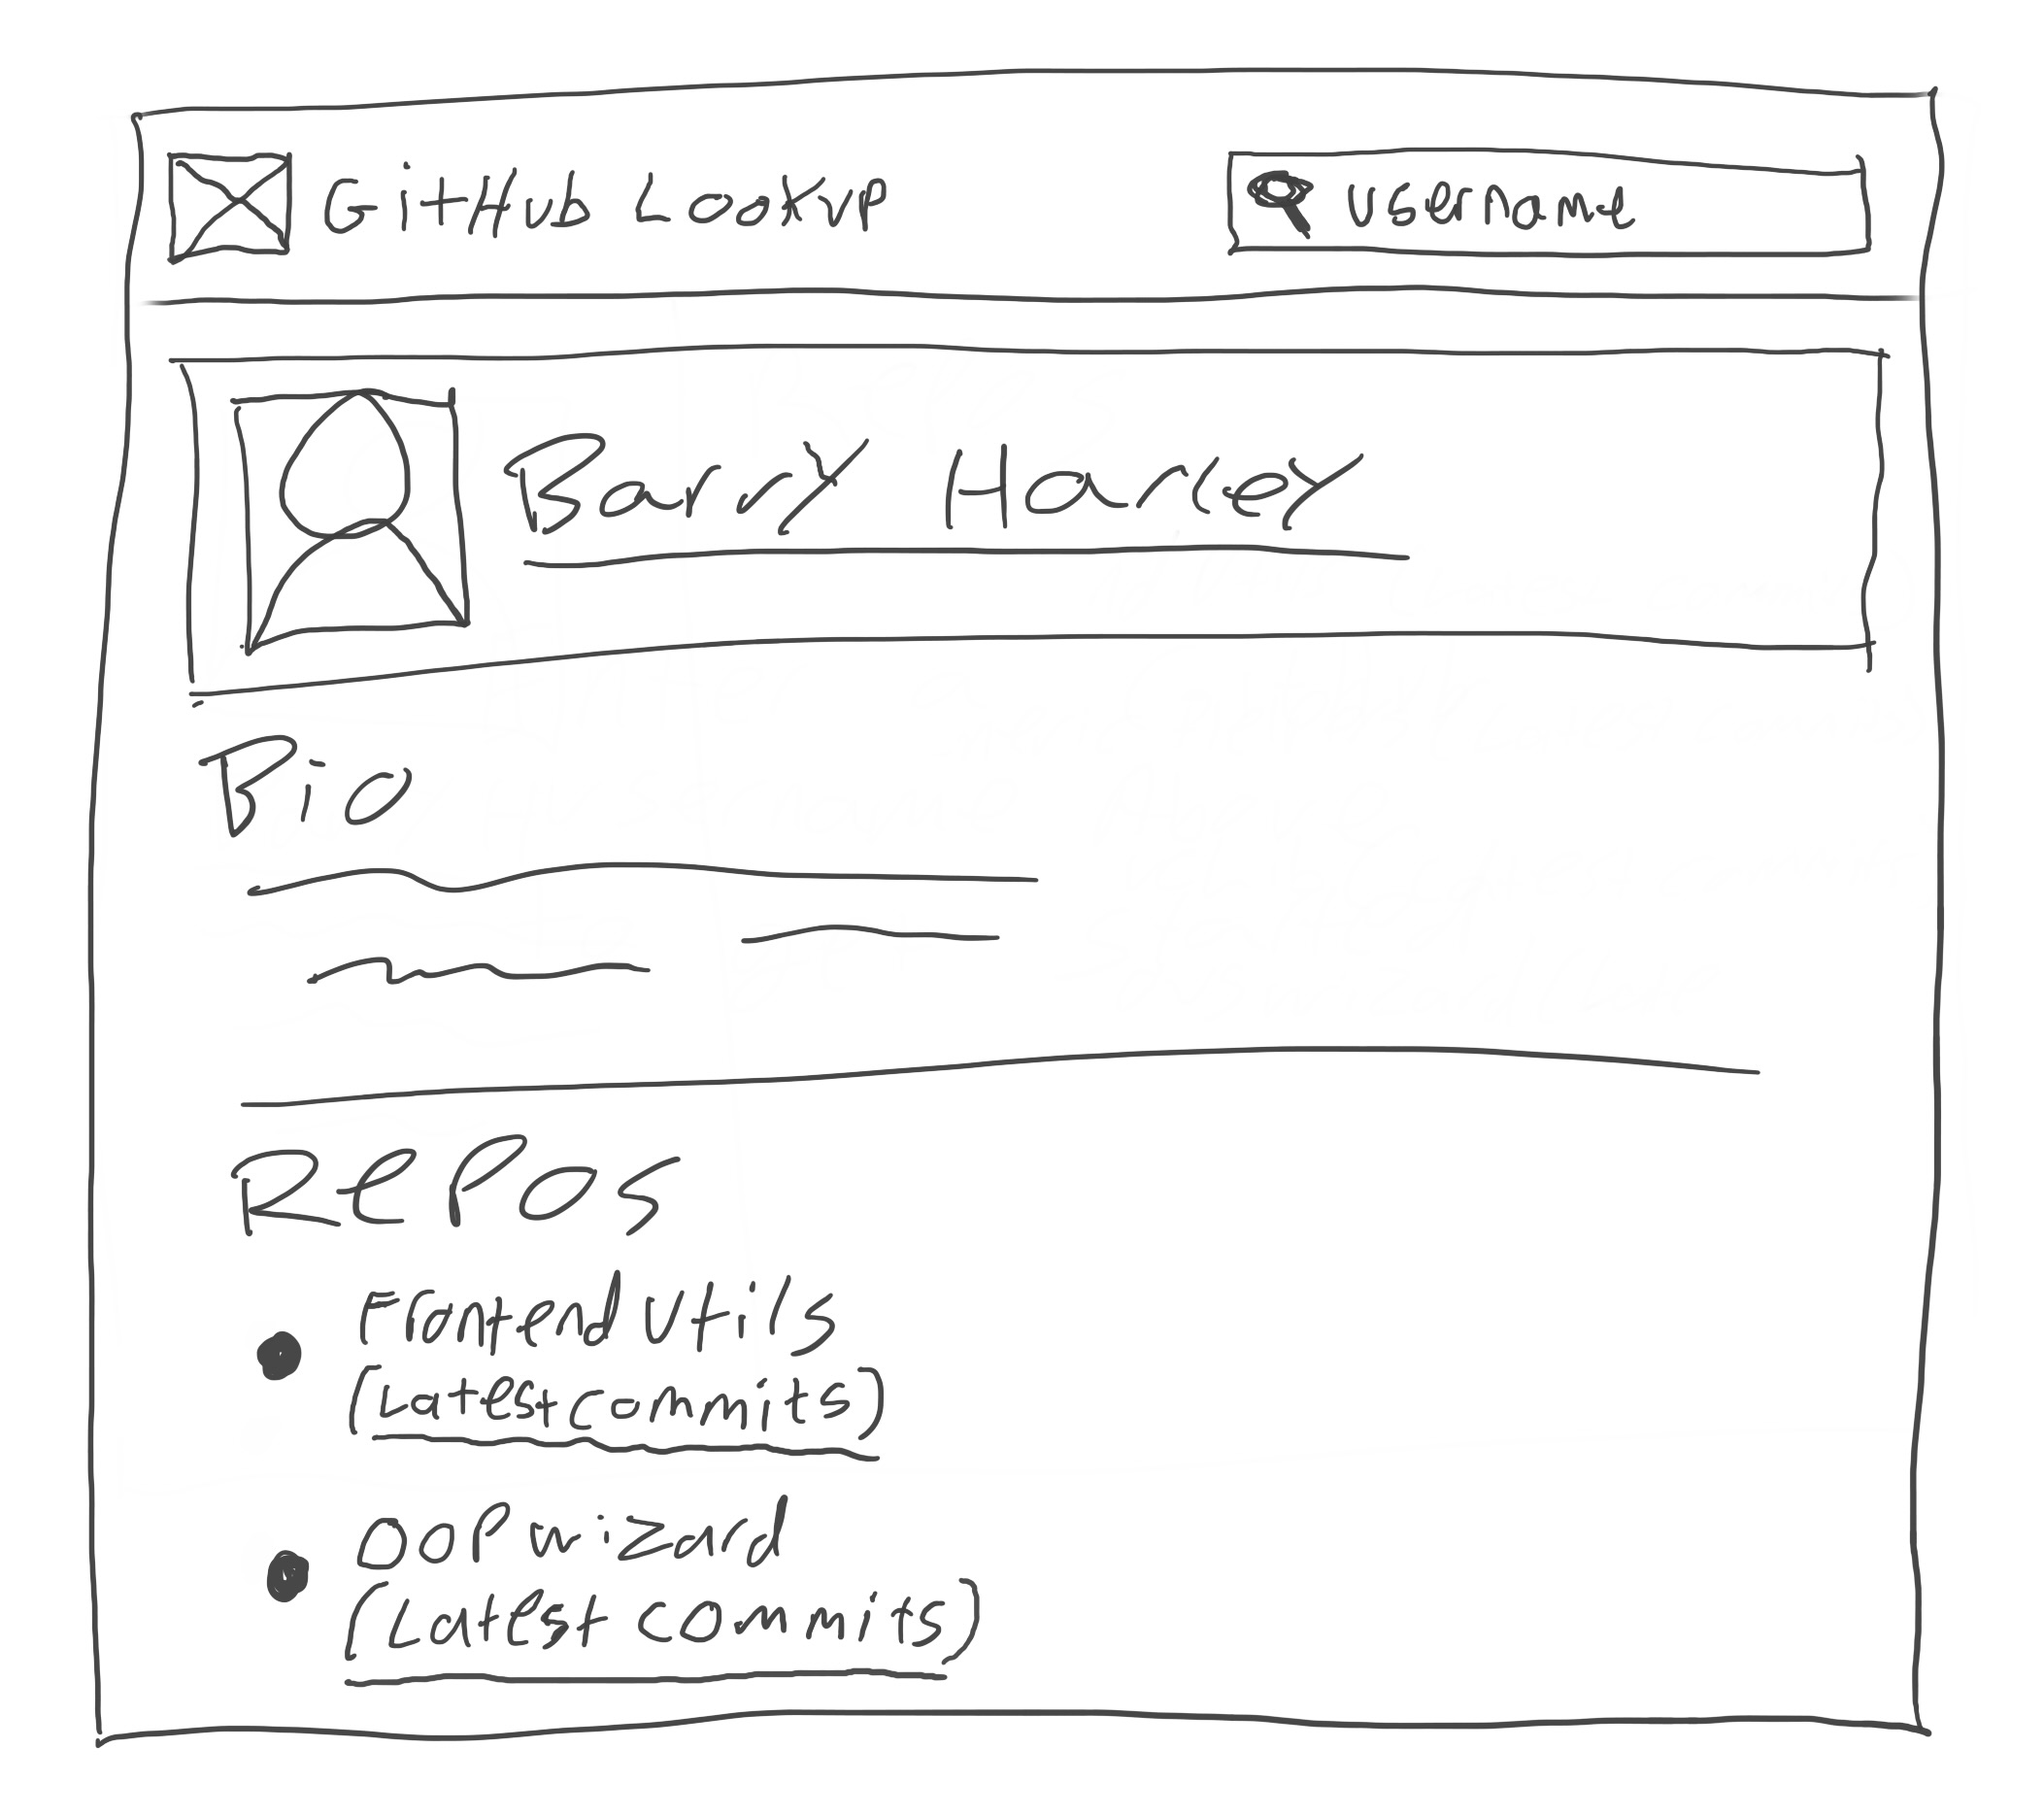 GitHub Lookup
username
Barry Harvey
Bio
Repos
Frontend Utils
(Latest commits)
OOP wizard
(Latest commits)